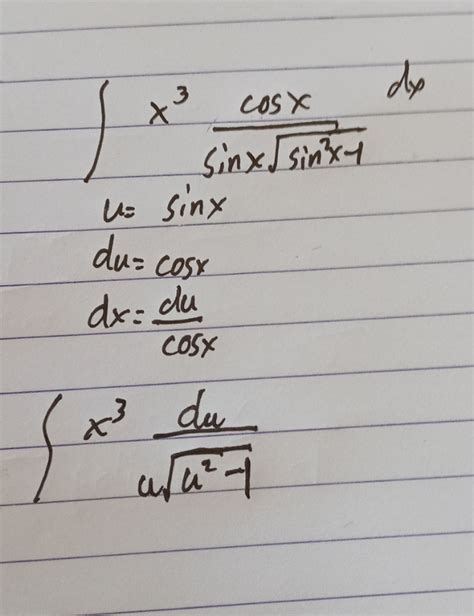 ∫ x³ cosx / (sinx√(sin²x-1)) dx
u= sinx
du=cosx
dx= du/cosx
∫ x³ du / (u√(u²-1))